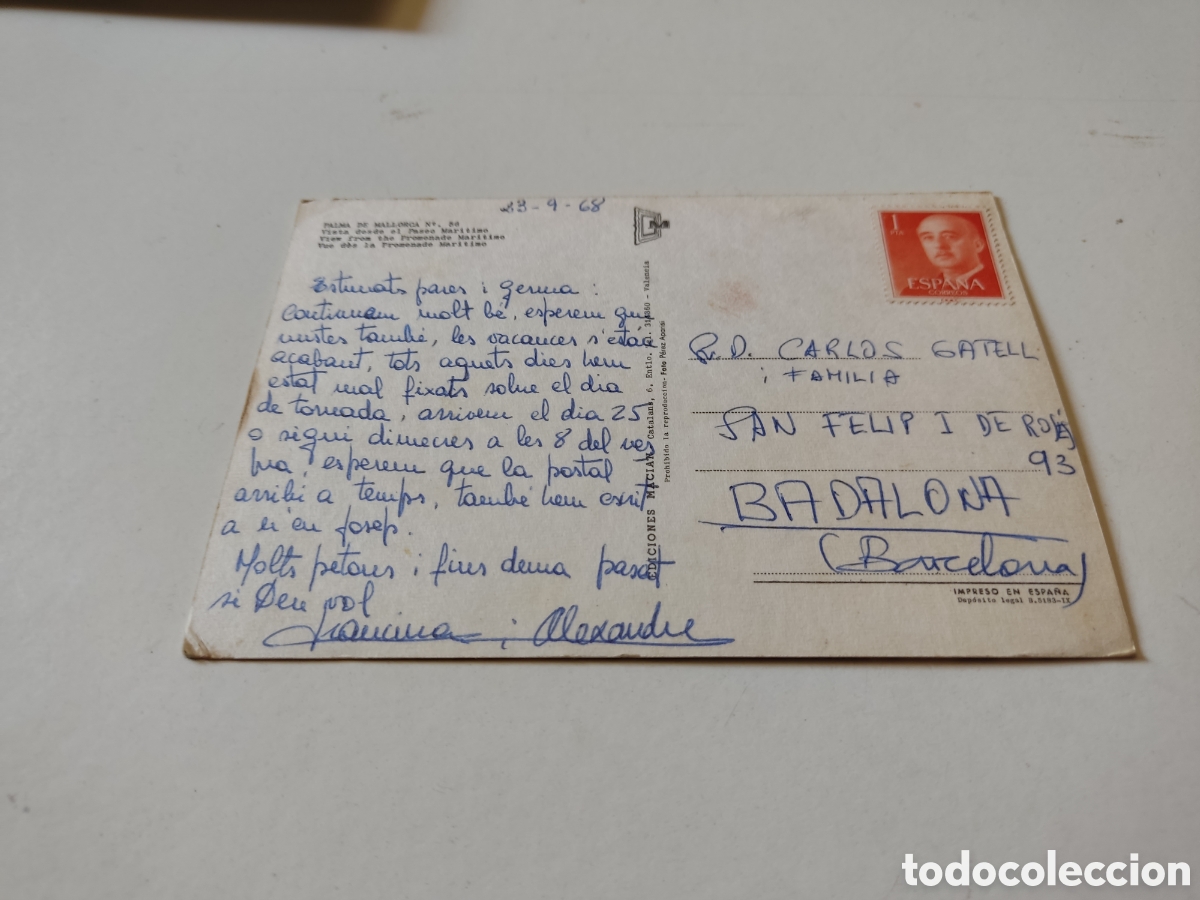 23-9-68
PALMA DE MALLORCA Nº. 90
Vista desde el Paseo Marítimo
View from the Promenade Maritimo
Vue dès la Promenade Maritimo
Estimats pares i germa:
Continuam molt bé, esperem que
vustes també, les vacances s'están
acabant, tots aquets dies hem
estat mal fixats sobre el dia
de tornada, arrivem el dia 25
o sigui dimecres a les 8 del ves
pra, esperem que la postal
arribi a temps, també hem escrit
a n'en Josep.
Molts petons i fins dema passat
si Deu vol
Francina i Alexandre
EDICIONES MACIAN Catalans, 6. Entlo. Tel. 314880 - Valencia
Prohibida la reproducción - Foto Pérez Aparisi
1
PTA
ESPAÑA
CORREOS
Sr. D. CARLOS GATELL
i FAMILIA
SAN FELIP I DE ROSÉS
93
BADALONA
(Barcelona)
IMPRESO EN ESPAÑA
Depósito legal B.5193-IX
todocoleccion